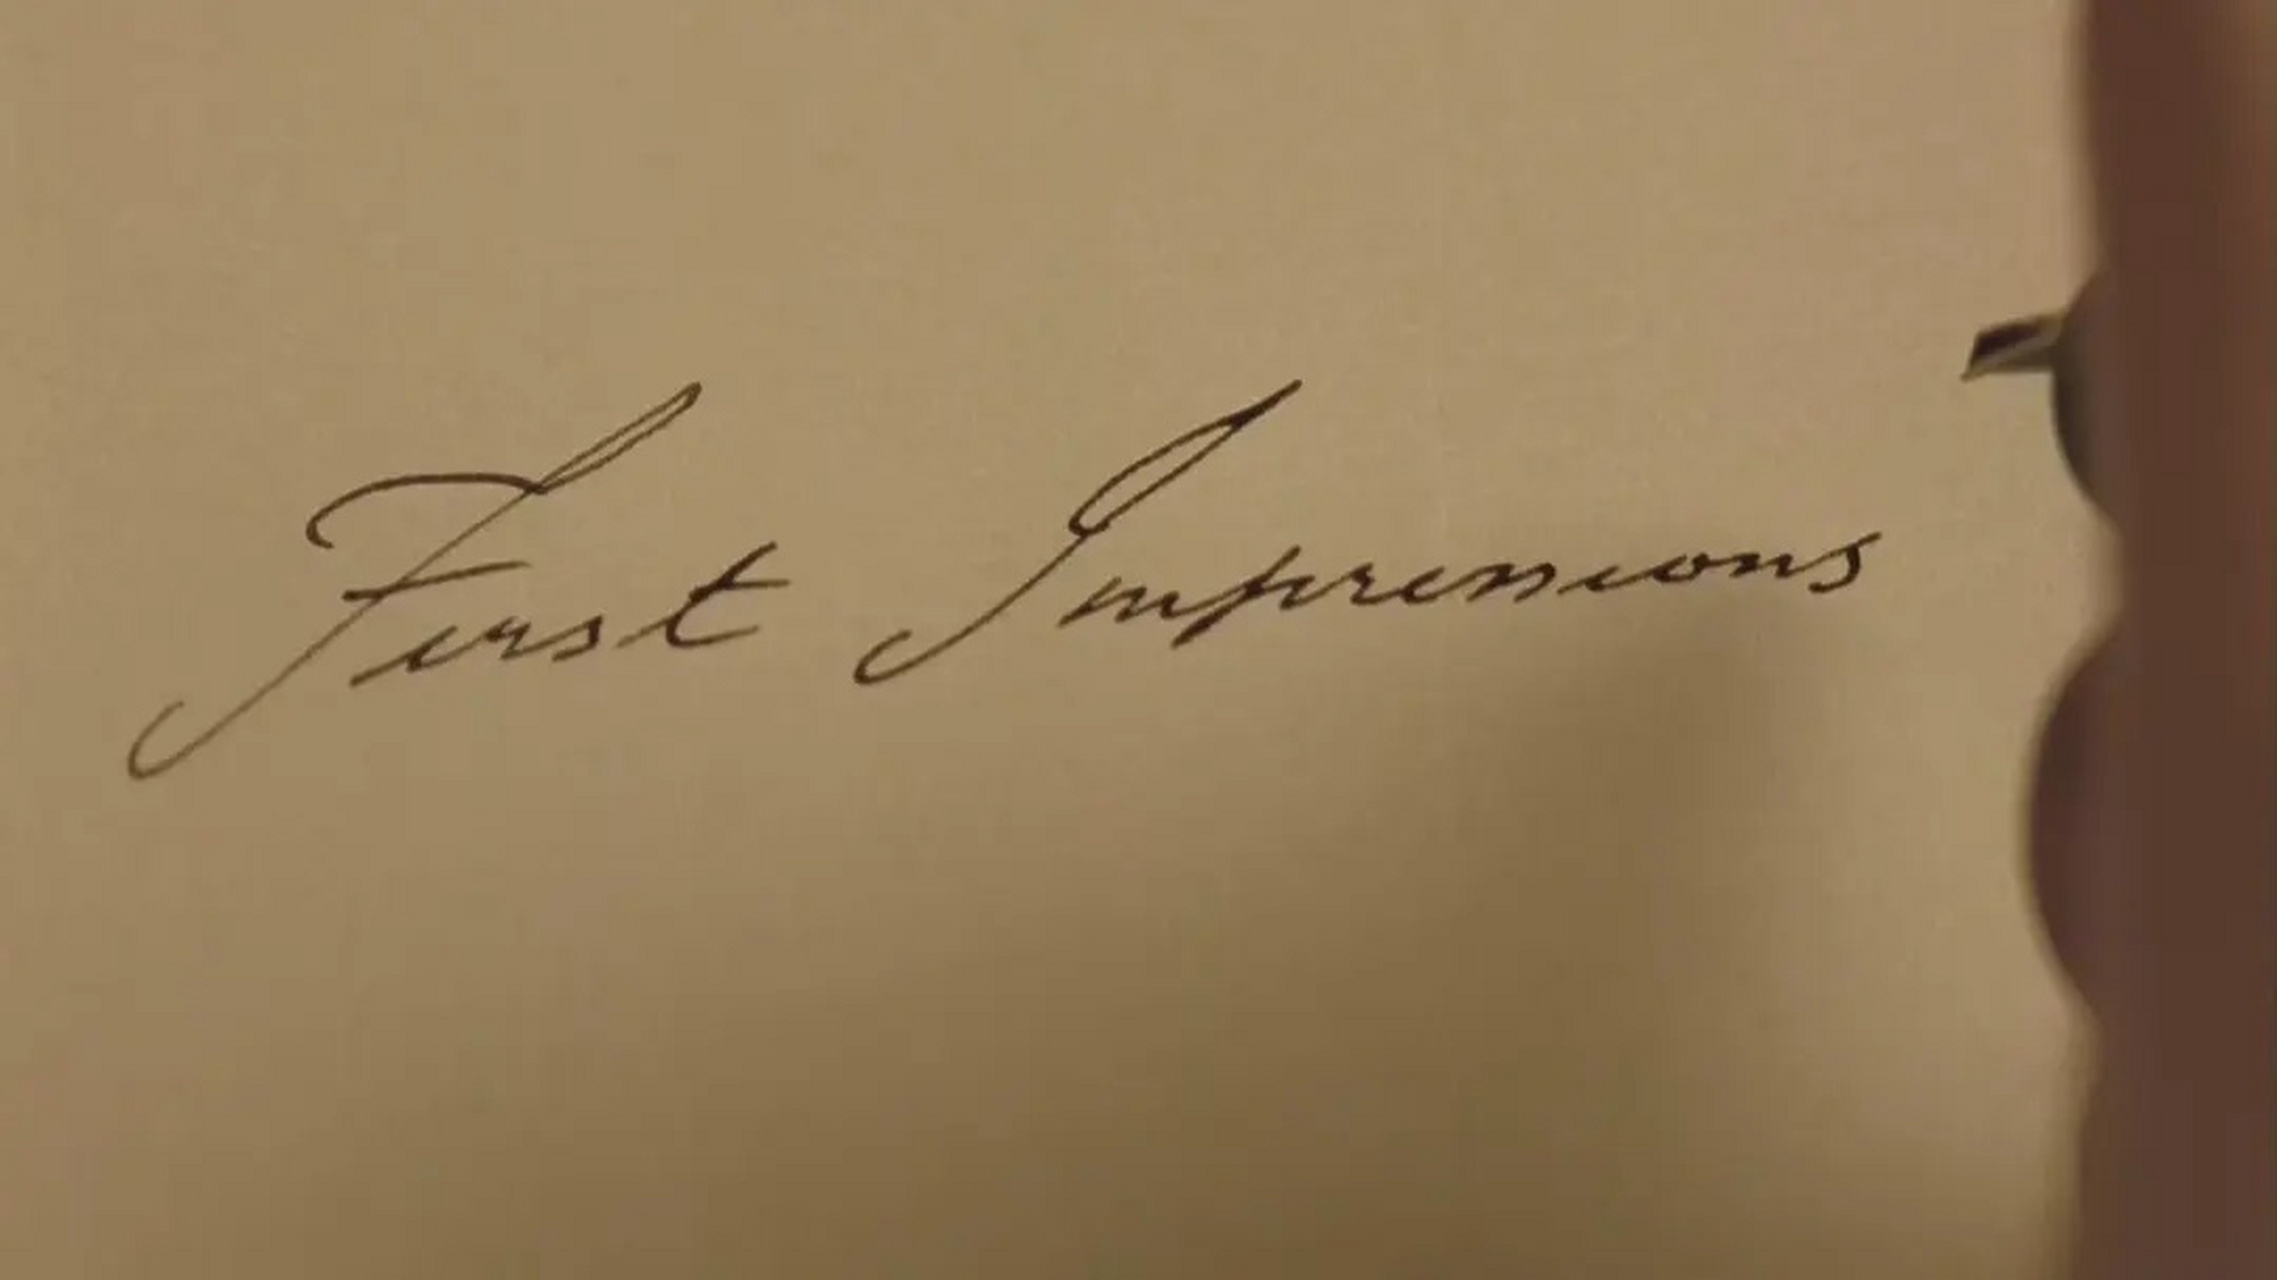 First Impressions